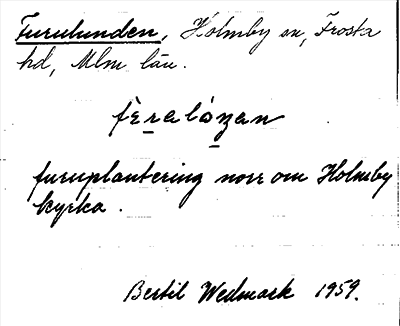 Furulunden, Holmby sn, Frosta
hd, Mlm län.
fèralóṉan
furuplantering norr om Holmby
kyrka.
Bertil Wedmark 1959.